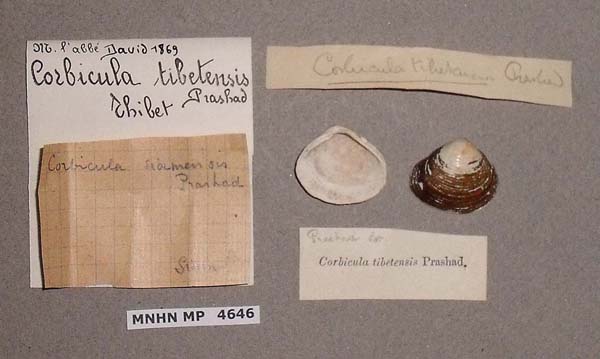 M. l'abbé David 1869
Corbicula tibetensis
Thibet Prashad
Corbicula siamensis
Prashad
Siam
Corbicula tibetensis Prashad
Prashad
Corbicula tibetensis Prashad.
MNHN MP 4646